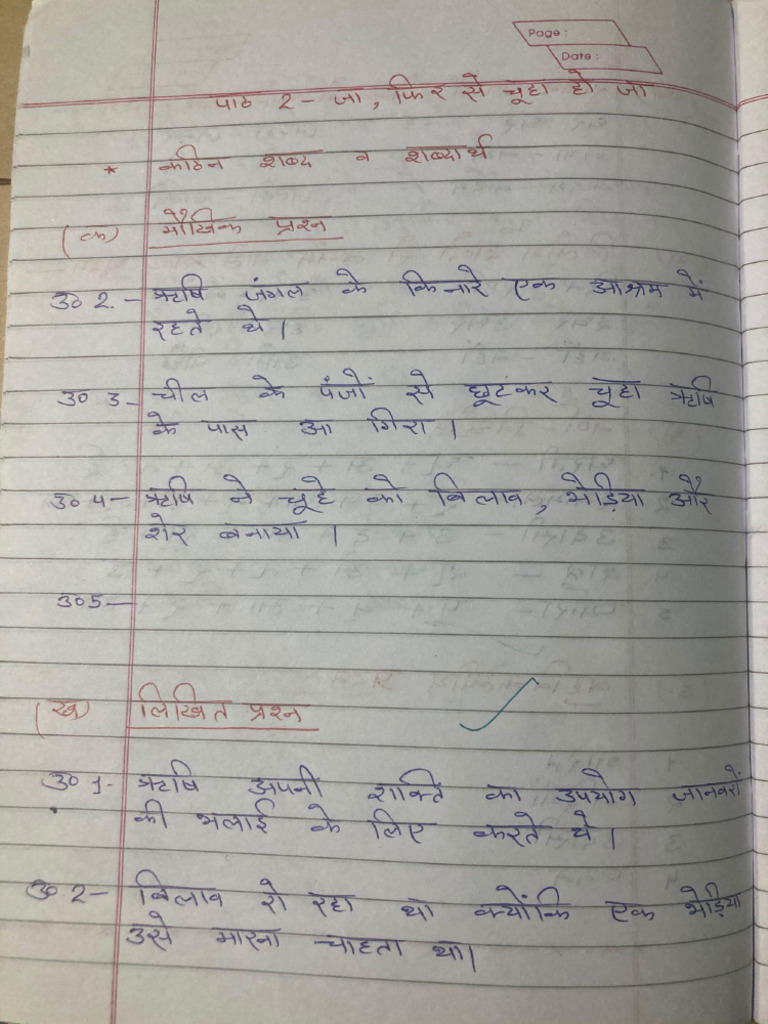 Page :
Date :
पाठ 2 - जा, फिर से चूहा हो जा
* कठिन शब्द व शब्दार्थ
(क) मौखिक प्रश्न
उ० 2. - ऋषि जंगल के किनारे एक आश्रम में
रहते थे।
उ० 3 - चील के पंजों से छूटकर चूहा ऋषि
के पास आ गिरा।
उ० 4 - ऋषि ने चूहे को बिलाव, भेड़िया और
शेर बनाया।
उ० 5 -
(ख) लिखित प्रश्न
उ० 1 - ऋषि अपनी शक्ति का उपयोग जानवरों
की भलाई के लिए करते थे।
उ० 2 - बिलाव रो रहा था क्योंकि एक भेड़िया
उसे मारना चाहता था।